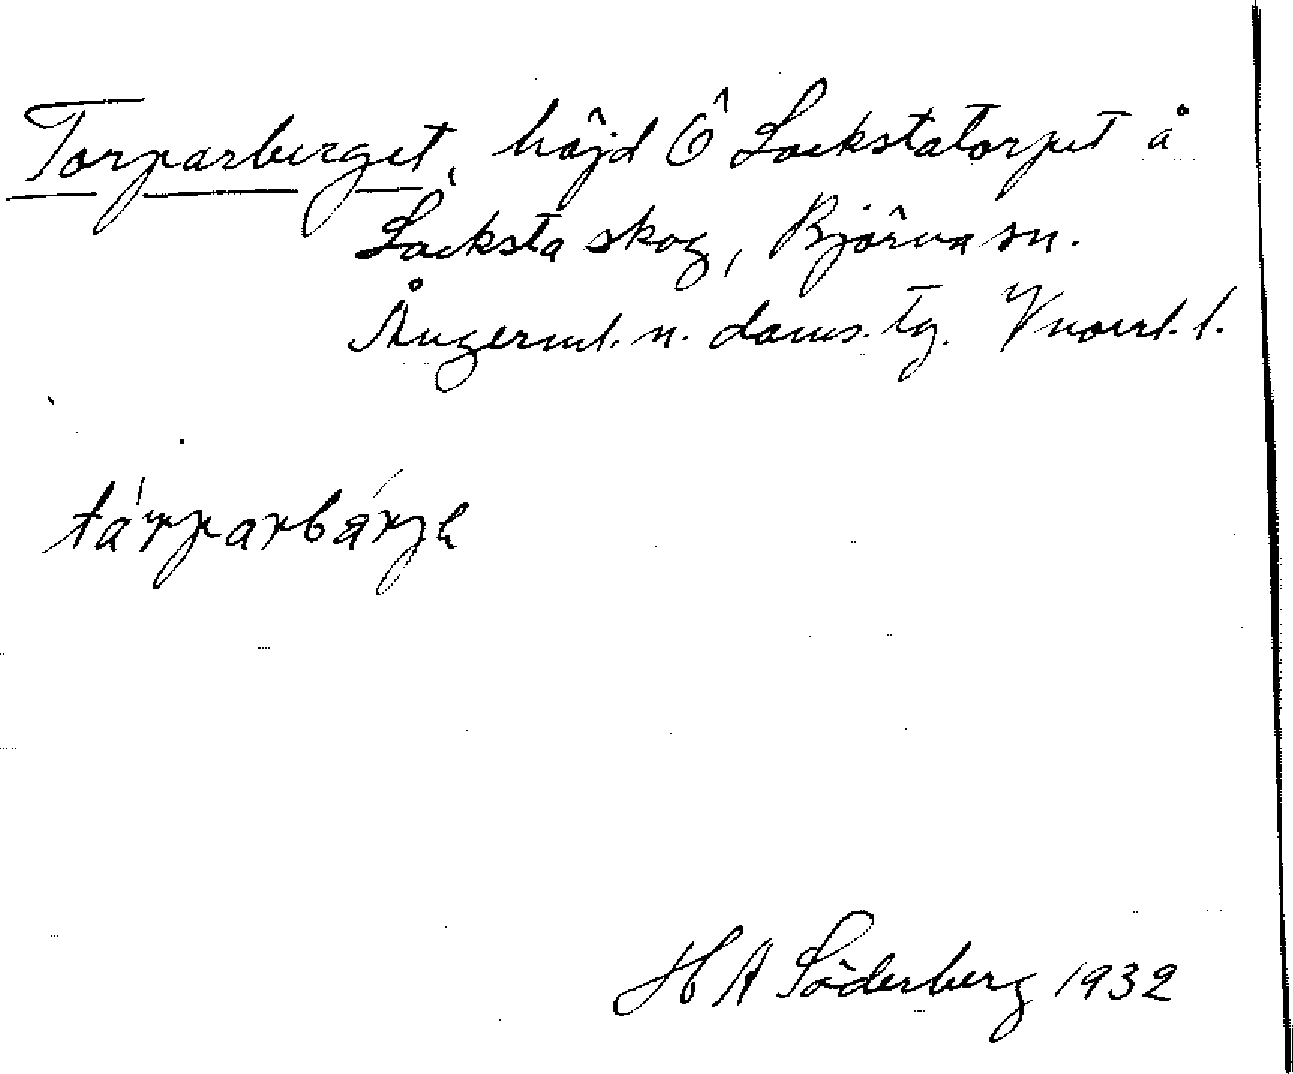 Torparberget, höjd Ö Locksta torpet å
Locksta skog, Björna sn.
Ångerml. n. doms. tg. Vnorrl. l.
tárparbárje
H A Söderberg 1932